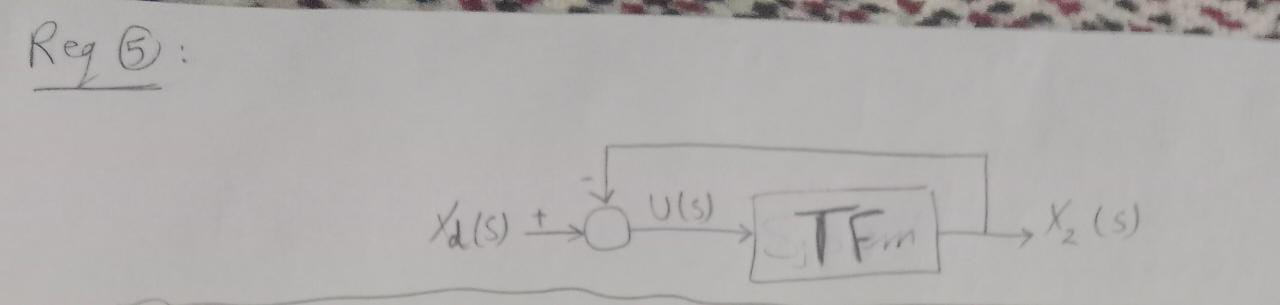 Req ⑤:
-
Xd(s) + U(s) TF X₂(s)